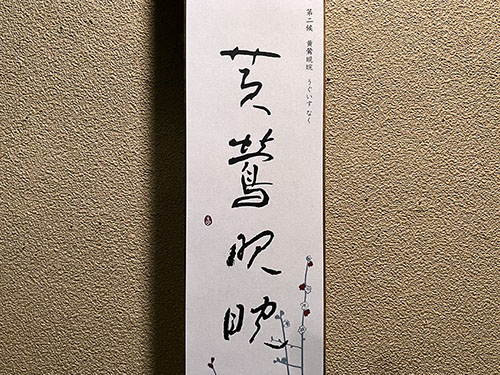 第二候　黄鶯睍睆　うぐいす なく
黄鶯睍睆